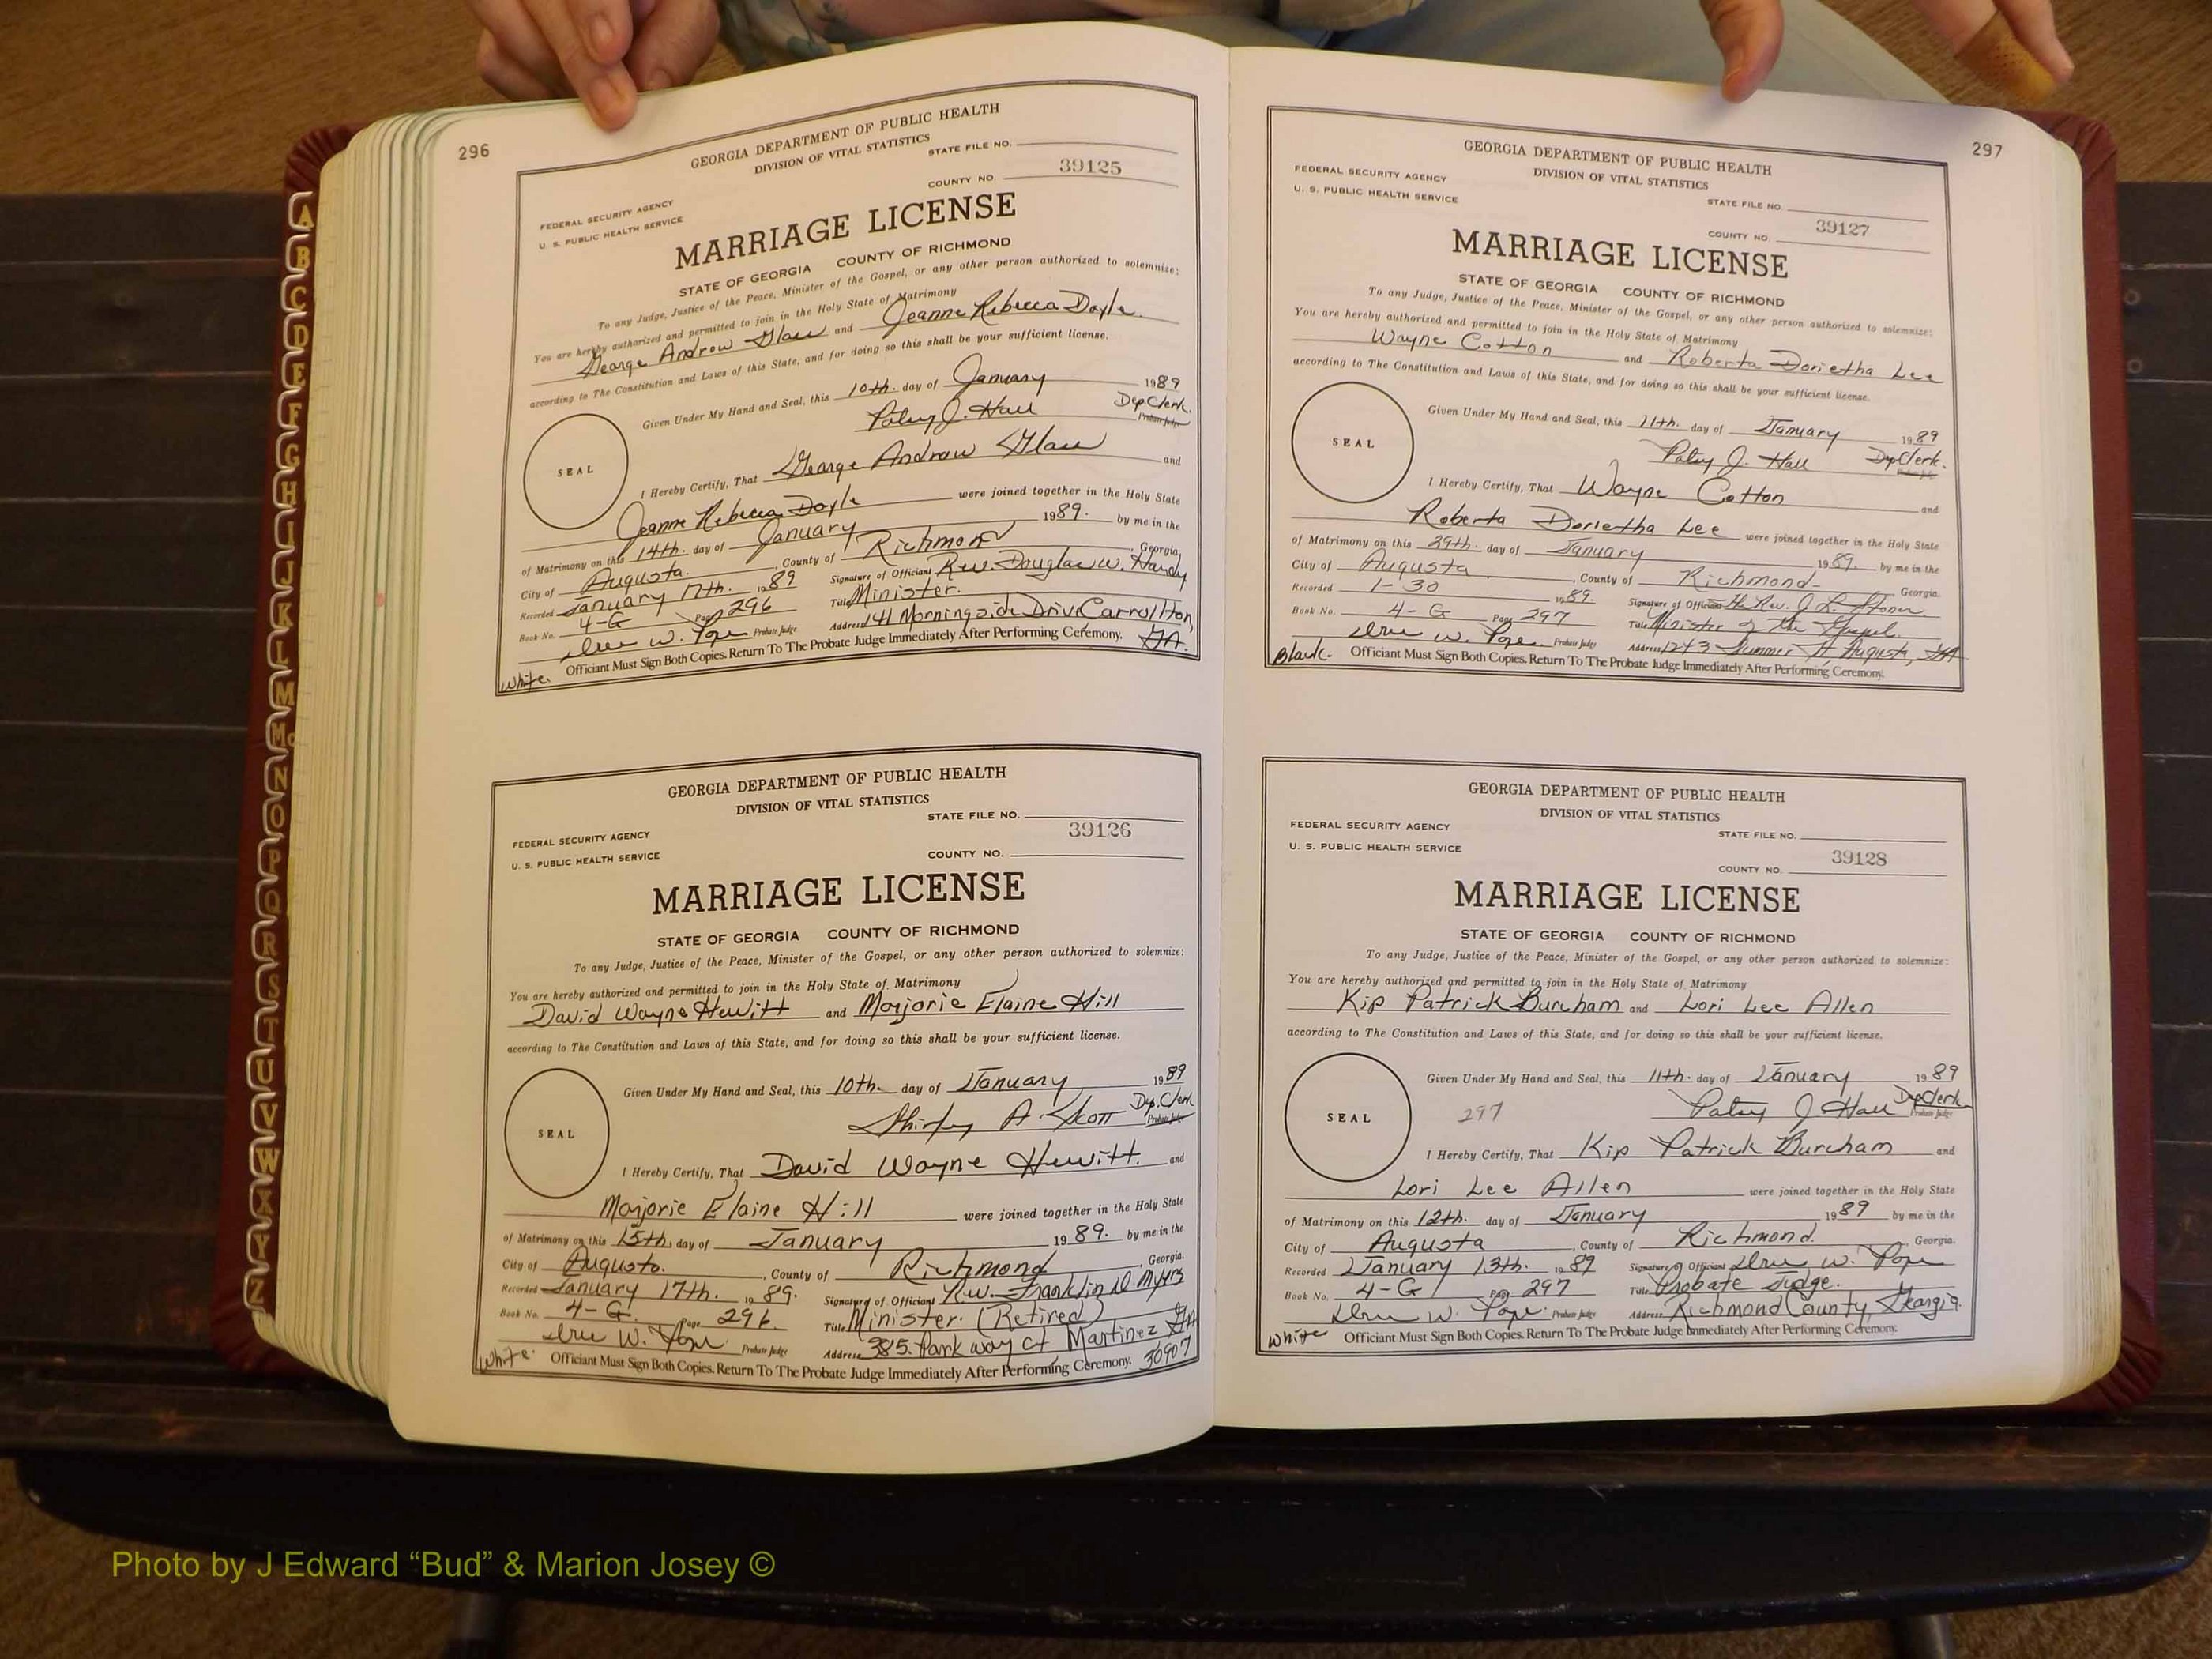 296
GEORGIA DEPARTMENT OF PUBLIC HEALTH
DIVISION OF VITAL STATISTICS
STATE FILE NO.
39125
COUNTY NO.
FEDERAL SECURITY AGENCY
U. S. PUBLIC HEALTH SERVICE
MARRIAGE LICENSE
STATE OF GEORGIA COUNTY OF RICHMOND
To any Judge, Justice of the Peace, Minister of the Gospel, or any other person authorized to solemnize:
You are hereby authorized and permitted to join in the Holy State of Matrimony
George Andrew and Jeanne Rebecca Doyle
according to The Constitution and Laws of this State, and for doing so this shall be your sufficient license.
Given Under My Hand and Seal, this 10th. day of January 1989
Patsy J. Hall Dep Clerk. Probate Judge
SEAL
I Hereby Certify, That George Andrew and
Jeanne Rebecca Doyle were joined together in the Holy State
of Matrimony on this 14th. day of January 1989. by me in the
City of Augusta. County of Richmond Georgia,
Recorded January 17th. 1989 Signature of Officiant Rev. Douglas W. Handy
Book No. 4-G Page 296 Title Minister.
W. Pope Probate Judge Address 141 Morningside Drive Carrollton,
GA.
White Officiant Must Sign Both Copies. Return To The Probate Judge Immediately After Performing Ceremony.
GEORGIA DEPARTMENT OF PUBLIC HEALTH
DIVISION OF VITAL STATISTICS
STATE FILE NO.
39126
FEDERAL SECURITY AGENCY
U. S. PUBLIC HEALTH SERVICE
COUNTY NO.
MARRIAGE LICENSE
STATE OF GEORGIA COUNTY OF RICHMOND
To any Judge, Justice of the Peace, Minister of the Gospel, or any other person authorized to solemnize:
You are hereby authorized and permitted to join in the Holy State of Matrimony
David Wayne Hewitt and Marjorie Elaine Hill
according to The Constitution and Laws of this State, and for doing so this shall be your sufficient license.
Given Under My Hand and Seal, this 10th. day of January 1989
Shirley A. Scott Dep. Clerk Probate Judge
SEAL
I Hereby Certify, That David Wayne Hewitt. and
Marjorie Elaine Hill were joined together in the Holy State
of Matrimony on this 15th. day of January 1989. by me in the
City of Augusta. County of Richmond Georgia.
Recorded January 17th. 1989. Signature of Officiant Rev. Franklin D Myers
Book No. 4-G. Page 296. Title Minister. (Retired)
W. Pope Probate Judge Address 385 Parkway ct Martinez GA
White. Officiant Must Sign Both Copies. Return To The Probate Judge Immediately After Performing Ceremony. 30907
297
GEORGIA DEPARTMENT OF PUBLIC HEALTH
DIVISION OF VITAL STATISTICS
FEDERAL SECURITY AGENCY
U. S. PUBLIC HEALTH SERVICE
STATE FILE NO.
39127
COUNTY NO.
MARRIAGE LICENSE
STATE OF GEORGIA COUNTY OF RICHMOND
To any Judge, Justice of the Peace, Minister of the Gospel, or any other person authorized to solemnize:
You are hereby authorized and permitted to join in the Holy State of Matrimony
Wayne Cotton and Roberta Dorietha Lee
according to The Constitution and Laws of this State, and for doing so this shall be your sufficient license.
Given Under My Hand and Seal, this 11th. day of January 1989
Patsy J. Hall Dep Clerk.
SEAL
I Hereby Certify, That Wayne Cotton and
Roberta Dorietha Lee were joined together in the Holy State
of Matrimony on this 29th. day of January 1989. by me in the
City of Augusta, County of Richmond Georgia.
Recorded 1-30 1989. Signature of Officiant The Rev. J. L.
Book No. 4-G Page 297 Title Minister of the Gospel.
W. Pope Probate Judge Address 1243 Summer St Augusta, GA
Black. Officiant Must Sign Both Copies. Return To The Probate Judge Immediately After Performing Ceremony.
GEORGIA DEPARTMENT OF PUBLIC HEALTH
DIVISION OF VITAL STATISTICS
FEDERAL SECURITY AGENCY
STATE FILE NO.
U. S. PUBLIC HEALTH SERVICE
39128
COUNTY NO.
MARRIAGE LICENSE
STATE OF GEORGIA COUNTY OF RICHMOND
To any Judge, Justice of the Peace, Minister of the Gospel, or any other person authorized to solemnize:
You are hereby authorized and permitted to join in the Holy State of Matrimony
Kip Patrick Burcham and Lori Lee Allen
according to The Constitution and Laws of this State, and for doing so this shall be your sufficient license.
Given Under My Hand and Seal, this 11th. day of January 1989
297 Patsy J Hall Dep Clerk Probate Judge
SEAL
I Hereby Certify, That Kip Patrick Burcham and
Lori Lee Allen were joined together in the Holy State
of Matrimony on this 12th. day of January 1989 by me in the
City of Augusta, County of Richmond. Georgia.
Recorded January 13th. 1989 Signature of Officiant W. Pope
Book No. 4-G Page 297 Title Probate Judge.
W. Pope Probate Judge Address Richmond County, Georgia.
White Officiant Must Sign Both Copies. Return To The Probate Judge Immediately After Performing Ceremony.
A
B
C
D
E
F
G
H
I
J
K
L
M
Mc
N
O
P
Q
R
S
T
U
V
W
X
Y
Z
Photo by J Edward “Bud” & Marion Josey ©